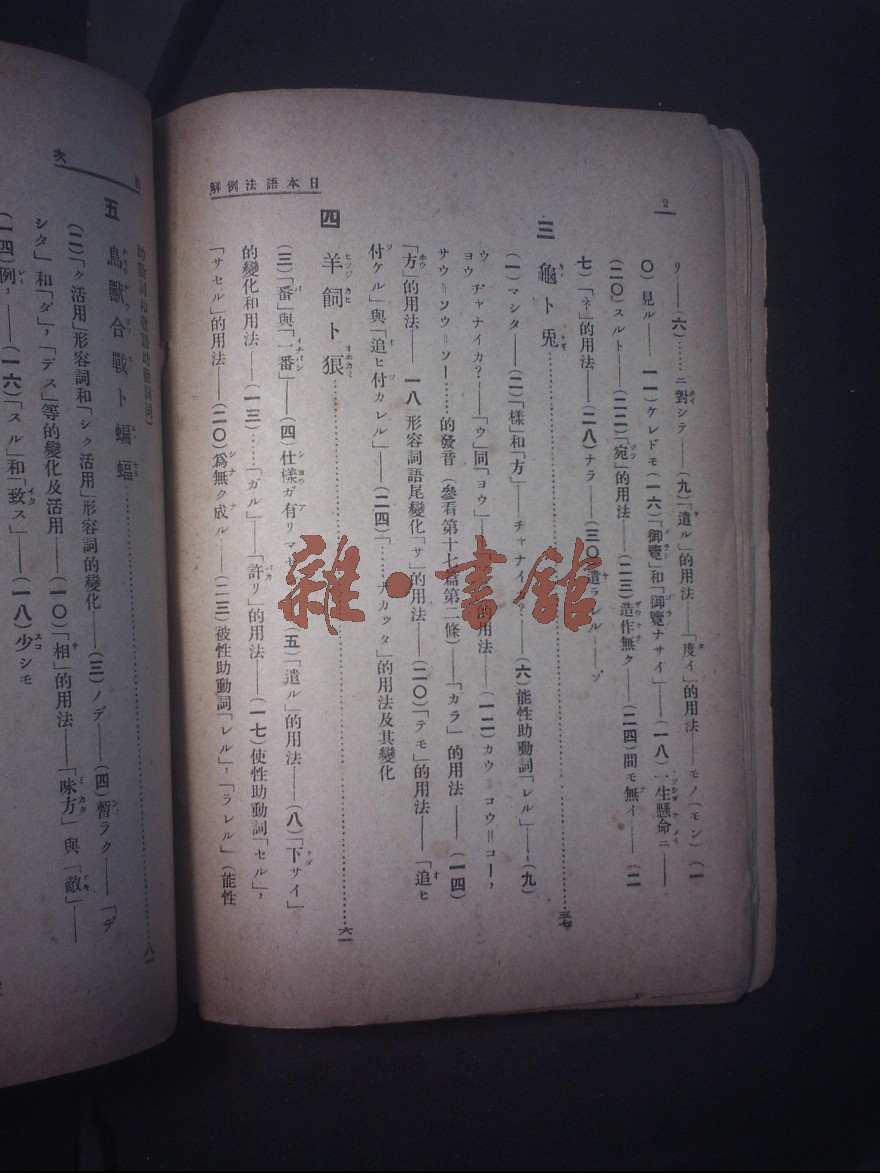 2
日本語法例解
リ——(六)……ニ對シテ——(九)「遣ル」的用法——「度イ」的用法——モノ(モン)(一
〇)見ル——(一一)ケレドモ(一六)「御覽」和「御覽ナサイ」——(一八)一生懸命ニ——
(二〇)スルト——(二二)「宛」的用法——(二三)造作無ク——(二四)間モ無イ——(二
七)「ネ」的用法——(二八)ナラ——(三〇)遣ラレル——ゾ
三 龜ト兎……三七
(一)マシタ——(二)「樣」和「方」——チャナイカ?——(六)能性助動詞「レル」——(九)
ウ ヂャナイカ?——「ウ」同「ヨウ」——的用法——(一二)カウ=コウ=コー,
ヨウ サウ=ソウ=ソー……的發音(參看第十七篇第二條)——「カラ」的用法——(一四)
「方」的用法——一八 形容詞語尾變化「サ」的用法——(二〇)「テモ」的用法——「追ヒ
付ケル」與「追ヒ付カレル」——(二四)「……ナカッタ」的用法及其變化
四 羊飼ト狼……六一
(三)「番」與「一番」——(四)仕樣ガ有リマセ——(五)「遣ル」的用法——(八)「下サイ」
的變化和用法——(一三)……「ガル」——「許リ」的用法——(一七)使性助動詞「セル」,
「サセル」的用法——(二〇)爲無ク成ル——(二三)被性助動詞「レル」,「ラレル」(能性
雜·書館
次
助動詞和敬語助動詞同)
五 鳥獸合戰ト蝙蝠……八一
(二)「ク活用」形容詞和「シク活用」形容詞的變化——(三)ノデ——(四)暫ラク——「デ
シタ」和「ダ」,「デス」等的變化及活用——(一〇)「相」的用法——「味方」與「敵」——
(一四)例,——(一六)「スル」和「致ス」——(一八)少シモ